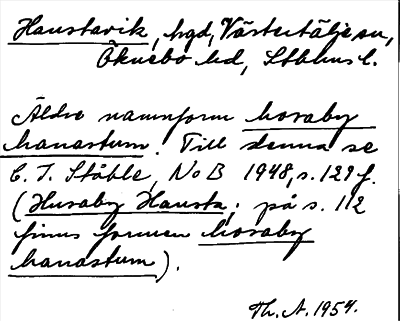 Haustavik, hgd, Västertälje sn,
Öknebo hd, Sthlms l.
Äldre namnform horaby
hanastum. Till denna se
C. I. Ståhle, NoB 1948, s. 129 f.
(Husaby Hausta; på s. 112
finns formen horaby
hanastum).
Th. A. 1954.